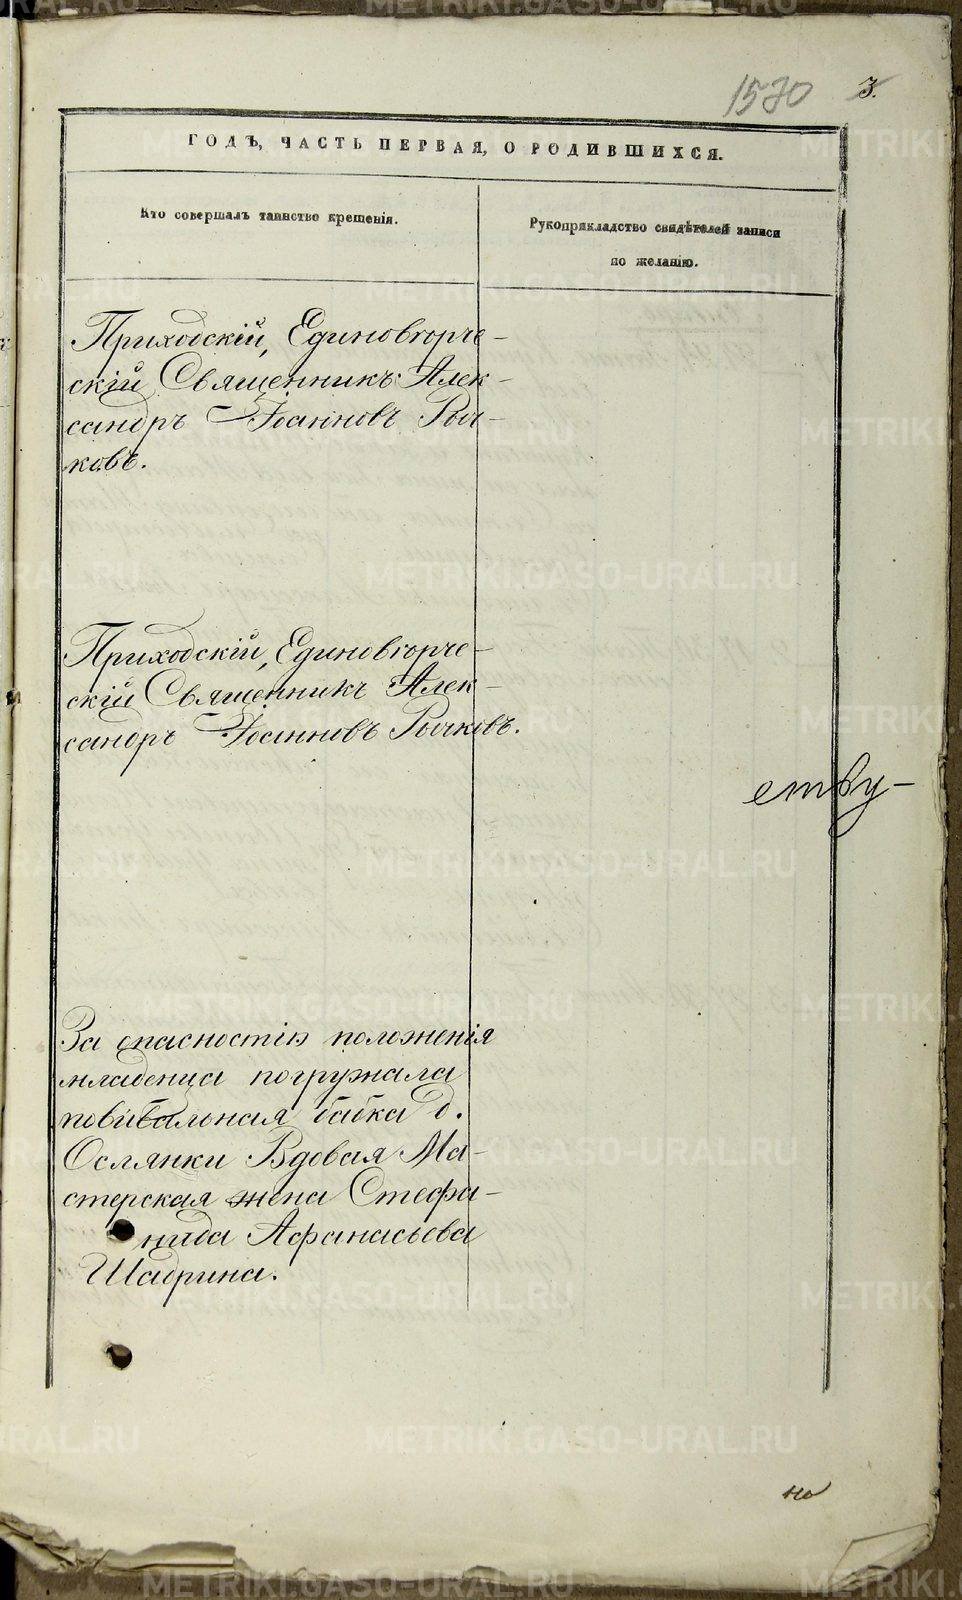 1570 3.
ГОДЪ, ЧАСТЬ ПЕРВАЯ, О РОДИВШИХСЯ.
Кто совершалъ таинство крещенія.
Рукоприкладство свидѣтелей записи
по желанію.
Приходскій, Единовѣрче-
скій Священникъ Алек-
сандръ Іоанновъ Рыч-
ковъ.
Приходскій, Единовѣрче-
скій Священникъ Алек-
сандръ Іоанновъ Рычковъ.
ству-
За опасностію положенія
младенца погружала
повивальная бабка д.
Ослянки Вдовая Ма-
стерская жена Стефа-
нида Афанасьева
Шадрина.
но
METRIKI.GASO-URAL.RU